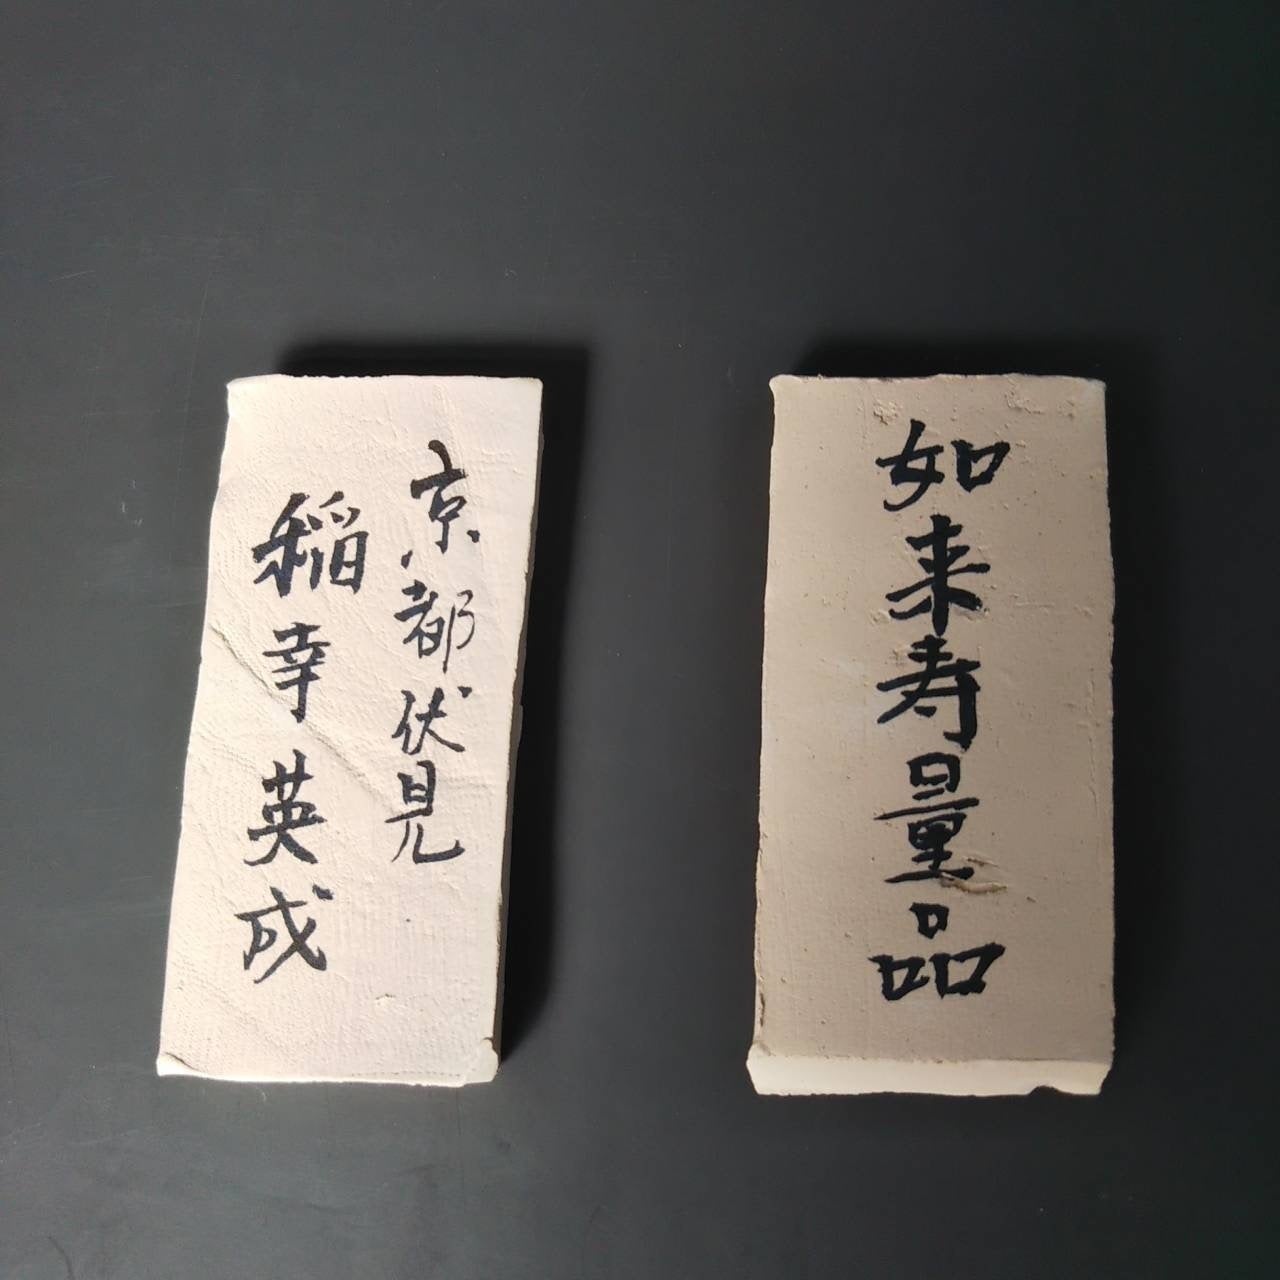 京都伏見
稲幸英成
如来寿量品